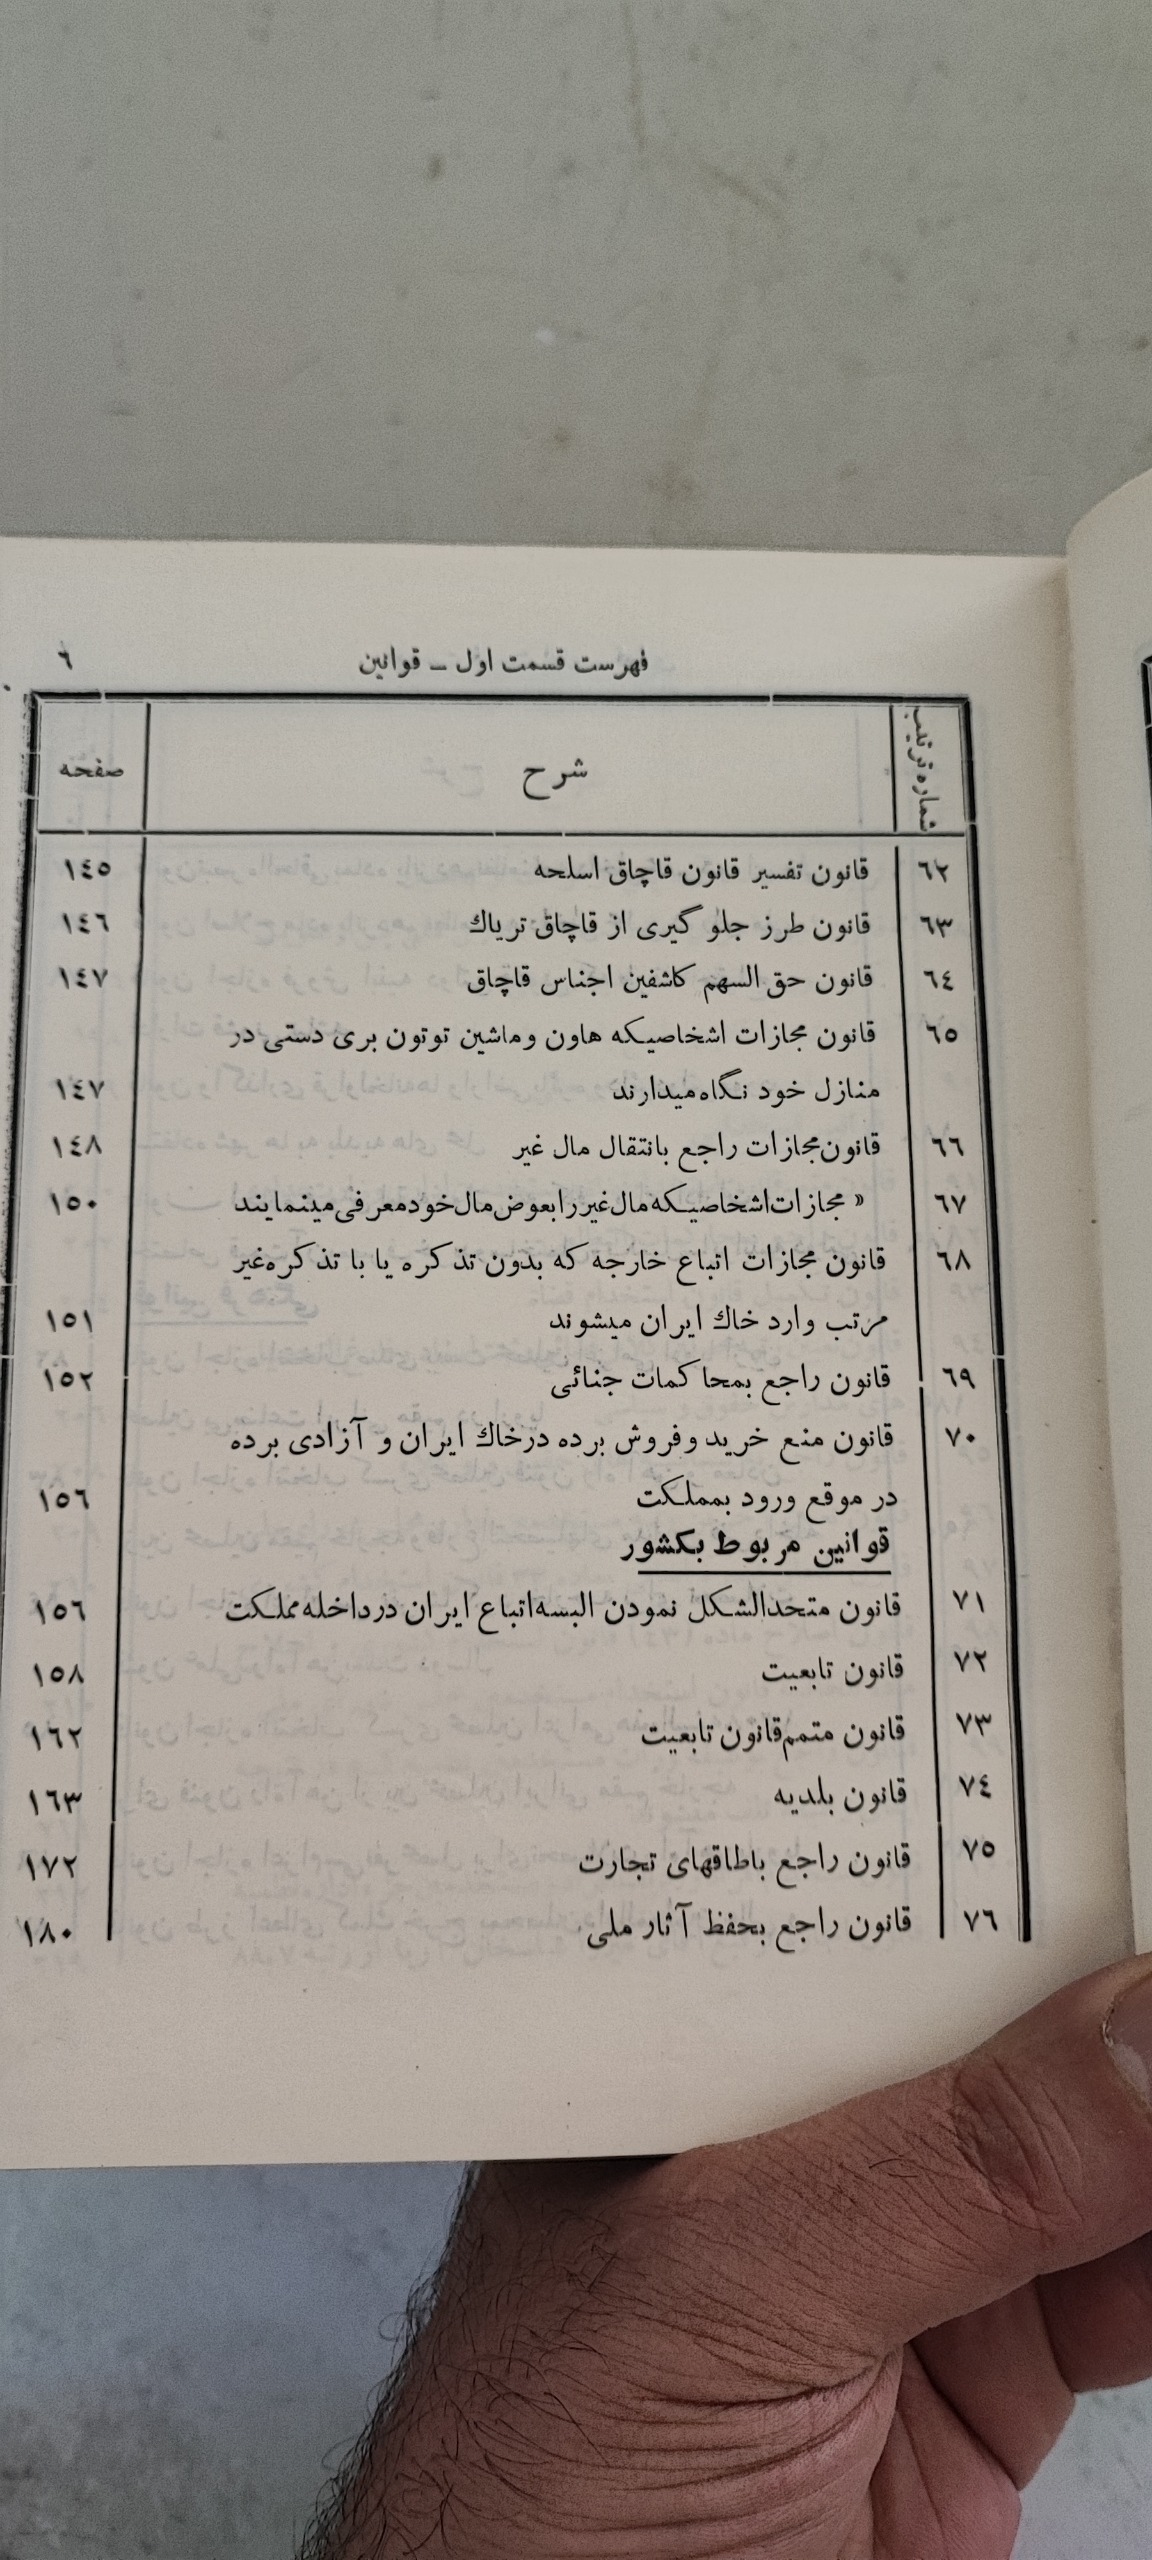 فهرست قسمت اول ــ قوانین ٦
شماره ترتیب شرح صفحه
٦٢ قانون تفسیر قانون قاچاق اسلحه ١٤٥
٦٣ قانون طرز جلو گیری از قاچاق تریاك ١٤٦
٦٤ قانون حق السهم کاشفین اجناس قاچاق ١٤٧
٦٥ قانون مجازات اشخاصیکه هاون وماشین توتون بری دستی در
منازل خود نگاه میدارند ١٤٧
٦٦ قانون مجازات راجع بانتقال مال غیر ١٤٨
٦٧ » مجازات اشخاصیکه مال غیر را بعوض مال خود معرفی مینمایند ١٥٠
٦٨ قانون مجازات اتباع خارجه که بدون تذکره یا با تذکره غیر
مرتب وارد خاك ایران میشوند ١٥١
٦٩ قانون راجع بمحاکمات جنائی ١٥٢
٧٠ قانون منع خرید وفروش برده درخاك ایران و آزادی برده
در موقع ورود بمملکت ١٥٦
قوانین مربوط بکشور
٧١ قانون متحدالشکل نمودن البسه اتباع ایران درداخله مملکت ١٥٦
٧٢ قانون تابعیت ١٥٨
٧٣ قانون متمم قانون تابعیت ١٦٢
٧٤ قانون بلدیه ١٦٣
٧٥ قانون راجع باطاقهای تجارت ١٧٢
٧٦ قانون راجع بحفظ آثار ملی ١٨٠